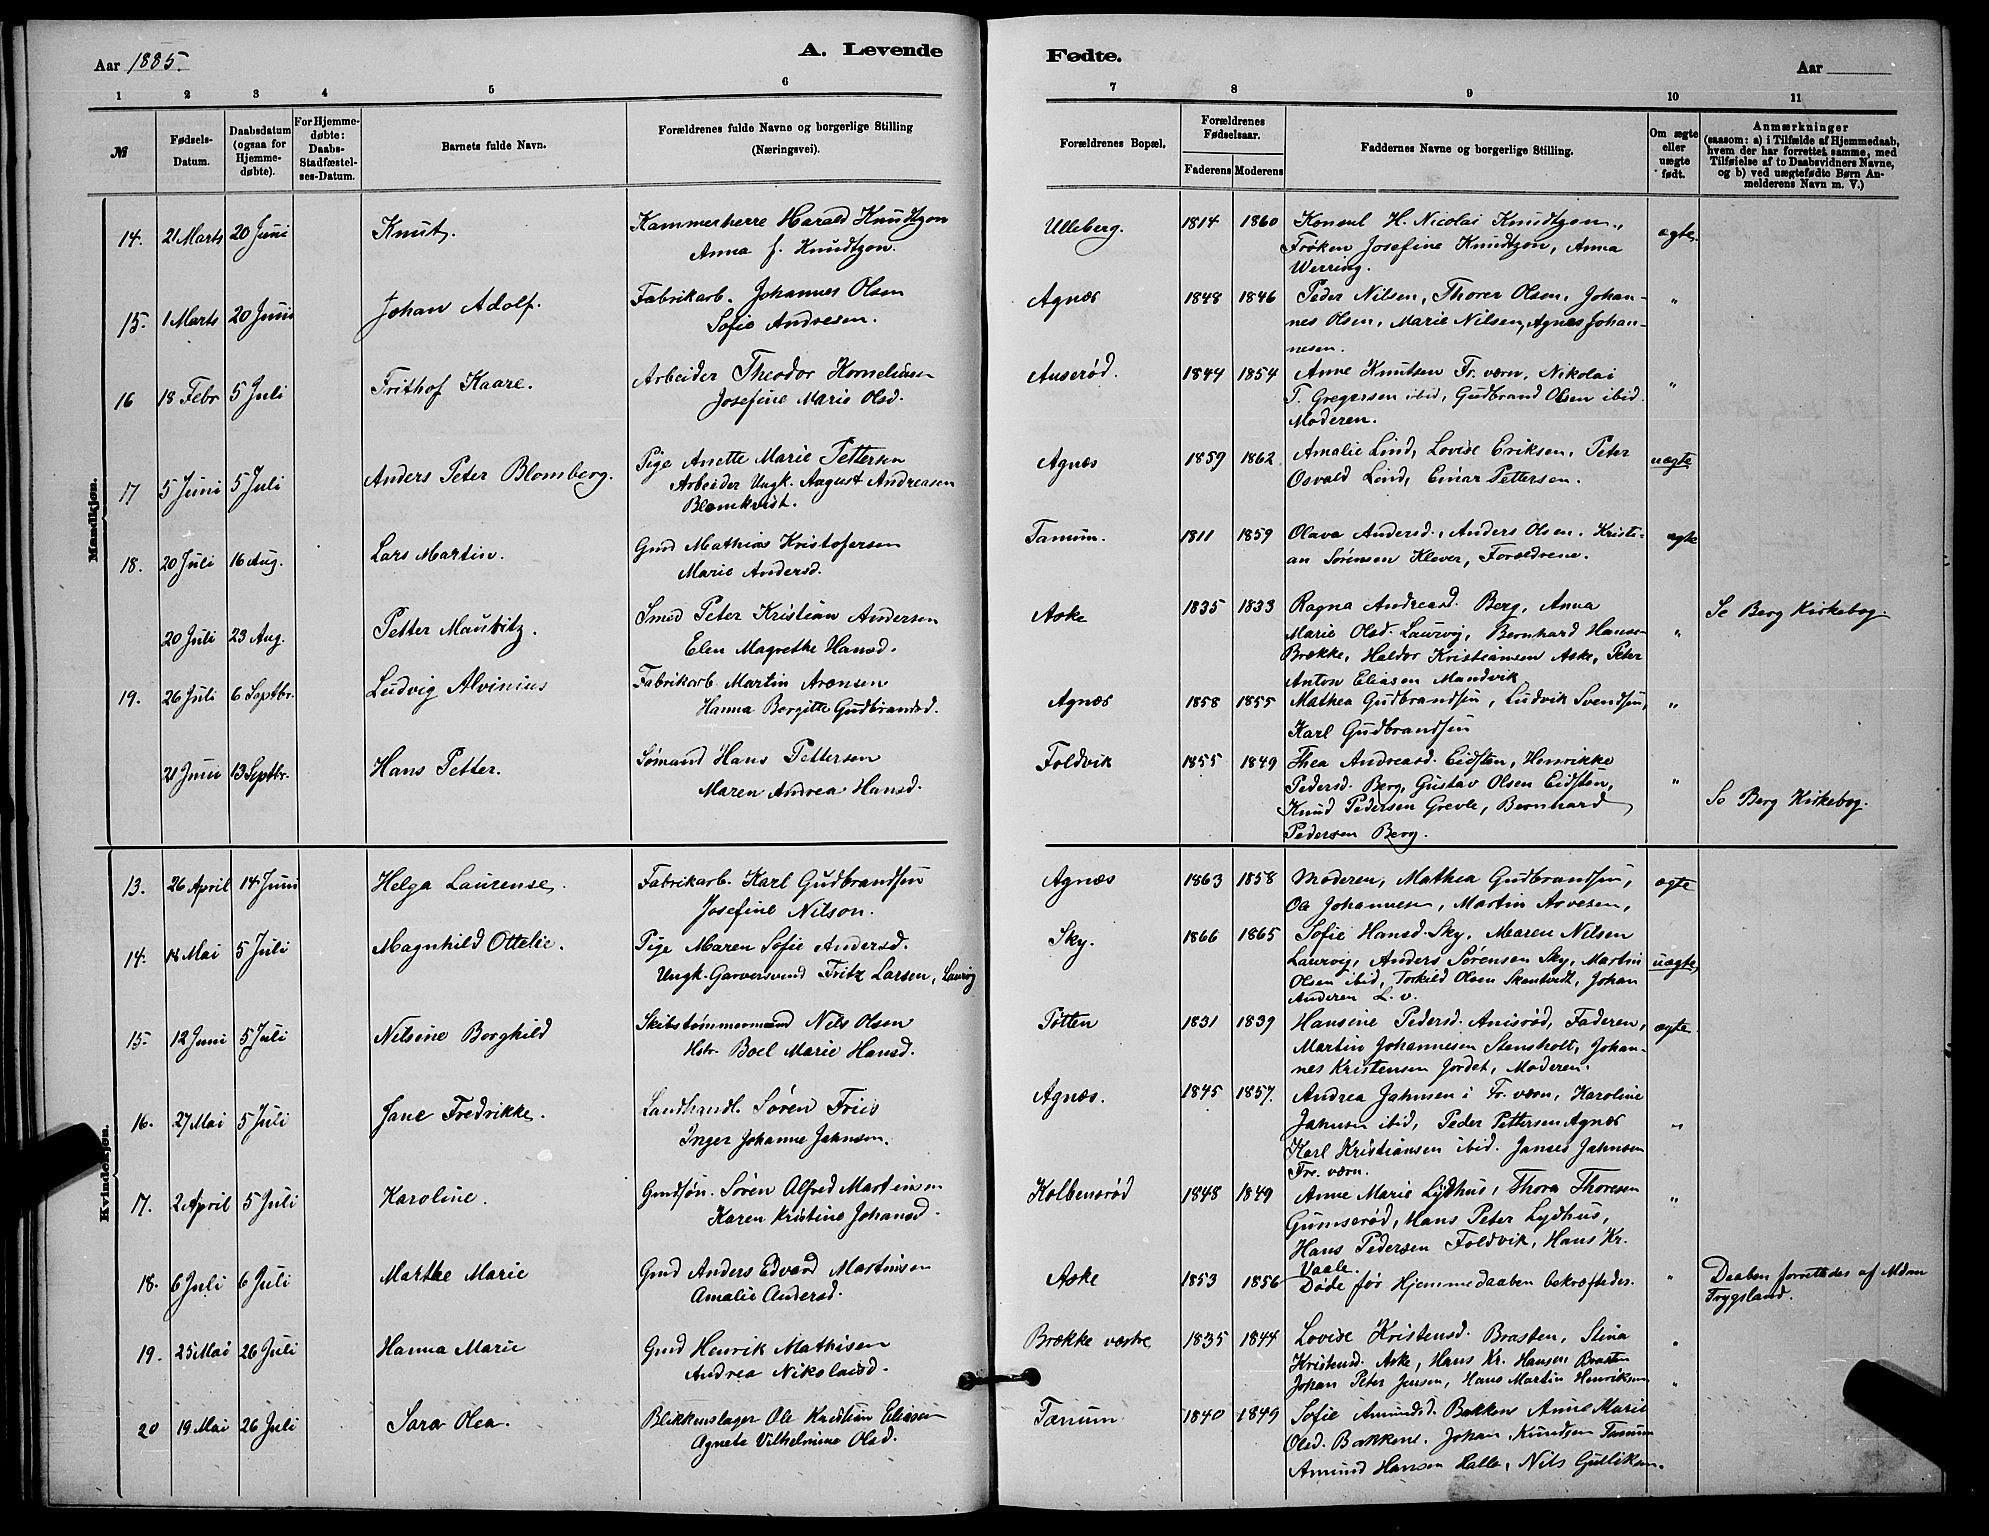 Aar 1885.
A. Levende
Fødte.
Aar
1 2 3 4 5 6 7 8 9 10 11
№
Fødsels-
Datum.
Daabsdatum
(ogsaa for
Hjemme-
døbte).
For Hjemme-
døbte:
Daabs-
Stadfæstel-
ses-Datum.
Barnets fulde Navn.
Forældrenes fulde Navne og borgerlige Stilling
(Næringsvei).
Forældrenes Bopæl.
Forældrenes
Fødselsaar.
Faderens Moderens
Faddernes Navne og borgerlige Stilling.
Om ægte
eller
uægte
født.
Anmærkninger
(saasom: a) i Tilfælde af Hjemmedaab,
hvem der har forrettet samme, med
Tilføielse af to Daabsvidners Navne,
og b) ved uægtefødte Børn An-
melderens Navn m. V.)
Mandkjøn.
14. 21 Marts 20 Juni Knut. Kammerherre Harald Knudtzon
Anna f. Knudtzon.
Ulleberg. 1814 1860 Konsul H. Nicolai Knudtzon,
Frøken Josefine Knudtzon, Anna
Werring.
ægte
15. 1 Marts 20 Juni Johan Adolf. Fabrikarb. Johannes Olsen
Sofie Andresen.
Agnæs 1848 1846 Peder Nilsen, Thorer Olsen, Johan-
nes Olsen, Marie Nilsen, Agnes Johan-
nesen.
"
16 18 Febr 5 Juli Frithof Kaare. Arbeider Theodor Korneliusen
Josefine Marie Olsd.
Auserød. 1844 1854 Anne Knutsen Fr. værn, Nikolai
T. Gregersen ibid, Gudbrand Olsen ibid.
Moderen.
"
17 5 Juni 5 Juli Anders Peter Blomberg. Pige Anette Marie Pettersen
Arbeider Ungk. August Andreasen
Blomkvist.
Agnæs 1859 1862 Amalie Lind, Lovise Eriksen, Peter
Osvald Lind, Einar Pettersen.
uægte
18. 20 Juli 16 Aug. Lars Martin. Gmd Mathias Kristofersen
Marie Andersd.
Tanum. 1811 1859 Olava Andersd., Anders Olsen, Kristi-
an Sørensen Klever, Forældrene.
ægte
20 Juli 23 Aug. Petter Mauritz. Smed Peter Kristian Andersen
Elen Magrethe Hansd.
Aske 1835 1833 Ragna Andreasd. Berg, Anna
Marie Olsd. Laurvig, Bernhard Hansen
Brække, Haldor Kristiansen Aske, Peter
Anton Eliasen Mandvik
"
Se Berg Kirkebog.
19. 26 Juli 6 Septbr. Ludvig Alvinius Fabrikarb. Martin Arensen
Hanna Bergitte Gudbrandsd.
Agnæs 1858 1855 Mathea Gudbrandsen, Ludvik Svendsen,
Karl Gudbrandsen
"
21 Juni 13 Septbr. Hans Petter. Sømand Hans Pettersen
Maren Andrea Hansd.
Foldvik 1855 1849 Thea Andreasd. Eidsten, Henrikke
Pedersd. Berg, Gustav Olsen Eidsten,
Knud Pedersen Grevle, Bernhard
Pedersen Berg.
"
Se Berg Kirkebog.
Kvindekjøn.
13. 26 April 14 Juni Helga Laurense. Fabrikarb. Karl Gudbrandsen
Josefine Nilson.
Agnæs 1863 1858 Moderen, Mathea Gudbrandsen,
Ole Johannesen, Martin Arvesen,
ægte
14. 18 Mai 5 Juli Magnhild Ottelie. Pige Maren Sofie Andersd.
Ungk. Garversvend Fritz Larsen, Laurvig
Sky. 1866 1865 Sofie Hansd. Sky, Maren Nilsen
Laurvig, Anders Sørensen Sky, Martin
Olsen ibid, Torkild Olsen Skantvedt, Johan
Andersen L. v.
uægte
15. 12 Juni 5 Juli Nilsine Borghild Skibstømmermand Nils Olsen
Hstr. Boel Marie Hansd.
Pøtten 1831 1839 Hansine Pedersd. Anisrød, Faderen,
Martin Johannesen Stensholt, Johan-
nes Kristensen Jordet, Moderen.
ægte
16. 27 Mai 5 Juli Jane Fredrikke. Landhandl. Søren Friis
Inger Johanne Jahnsen.
Agnæs. 1845 1857. Andrea Jahnsen i Fr. værn, Karoline
Jahnsen ibid, Peder Pettersen Agnæs
Karl Kristiansen ibid. Janses Jahnsen
Fr. værn.
"
17. 2 April 5 Juli Karoline. Gmdsøn. Søren Alfred Martinsen
Karen Kristine Johansd.
Kolbensrød 1848 1849 Anne Marie Lydhus, Thora Thoresen
Gumserød, Hans Peter Lydhus,
Hans Pedersen Foldvik, Hans Kr.
Vaale.
"
18. 6 Juli 6 Juli Marthe Marie Gmd Anders Edvard Martinsen
Amalie Andersd.
Aske 1853 1856 Døde før Hjemmedaaben bekræftedes.
"
Daaben forrettedes af Mdm
Trygsland.
19. 25 Mai 26 Juli Hanna Marie Gmd Henrik Mathisen
Andrea Nikolaisd.
Brække vestre 1835 1844 Lovise Kristensd. Brasten, Stina
Kristensd. Aske, Hans Kr. Hansen Brasten
Johan Peter Jensen, Hans Martin Henriksen
"
20 19 Mai 26 Juli Sara Olea. Blikkenslager Ole Kristian Eliasen
Agnete Vilhelmine Olsd.
Tanum 1840 1849 Sofie Amundsd. Bakken Anne Marie
Olsd. Bakkene. Johan Knudsen Tanum
Amund Hansen Halle, Nils Gulliksen.
"